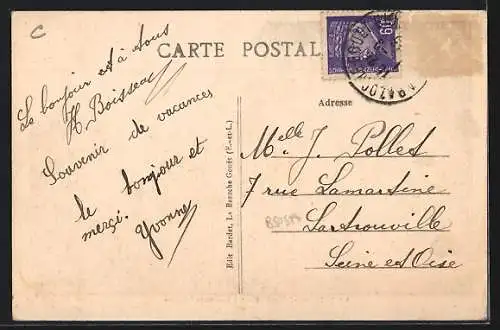 C
CARTE POSTALE
60
Le bonjour et à tous
H. Boisseau
Souvenir de vacances
le bonjour et
merci.
Yvonne
Edit. Bardet, La Bazoche Gouët (E.-et-L.)
Adresse
Melle J. Pollet
7 rue Lamartine
Sartrouville
Seine et Oise